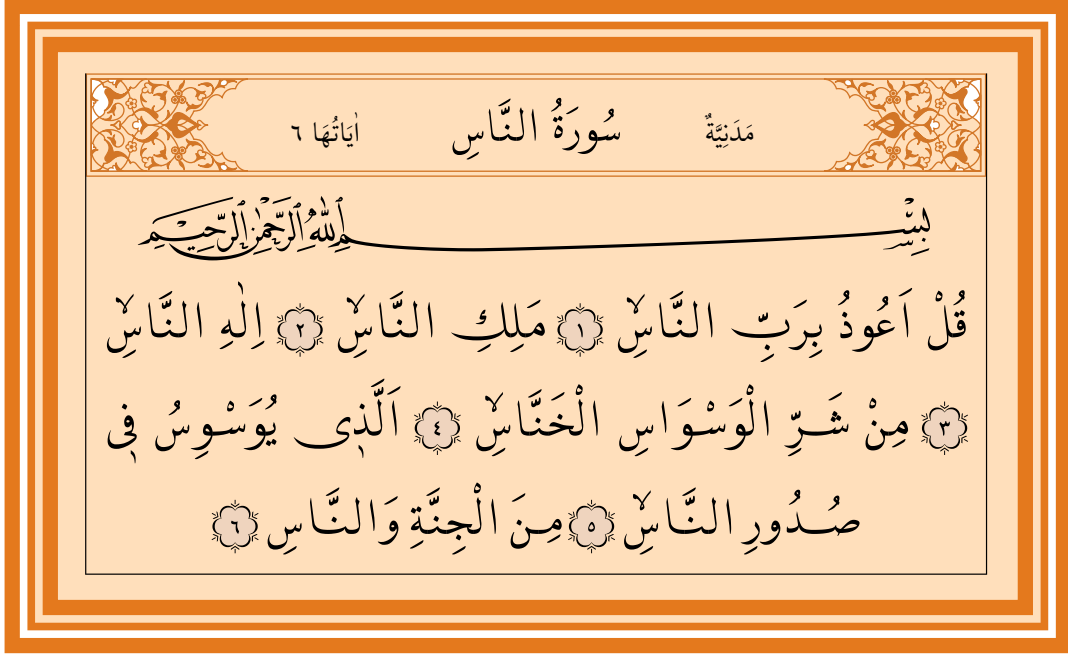 مَدَنِيَّةٌ سُورَةُ النَّاسِ اٰيَاتُهَا ٦
بِسْمِ اللّٰهِ الرَّحْمٰنِ الرَّحِيمِ
قُلْ اَعُوذُ بِرَبِّ النَّاسِۙ ١ مَلِكِ النَّاسِۙ ٢ اِلٰهِ النَّاسِۙ
٣ مِنْ شَرِّ الْوَسْوَاسِ الْخَنَّاسِۙ ٤ اَلَّذ۪ى يُوَسْوِسُ ف۪ى
صُدُورِ النَّاسِۙ ٥ مِنَ الْجِنَّةِ وَالنَّاسِ ٦